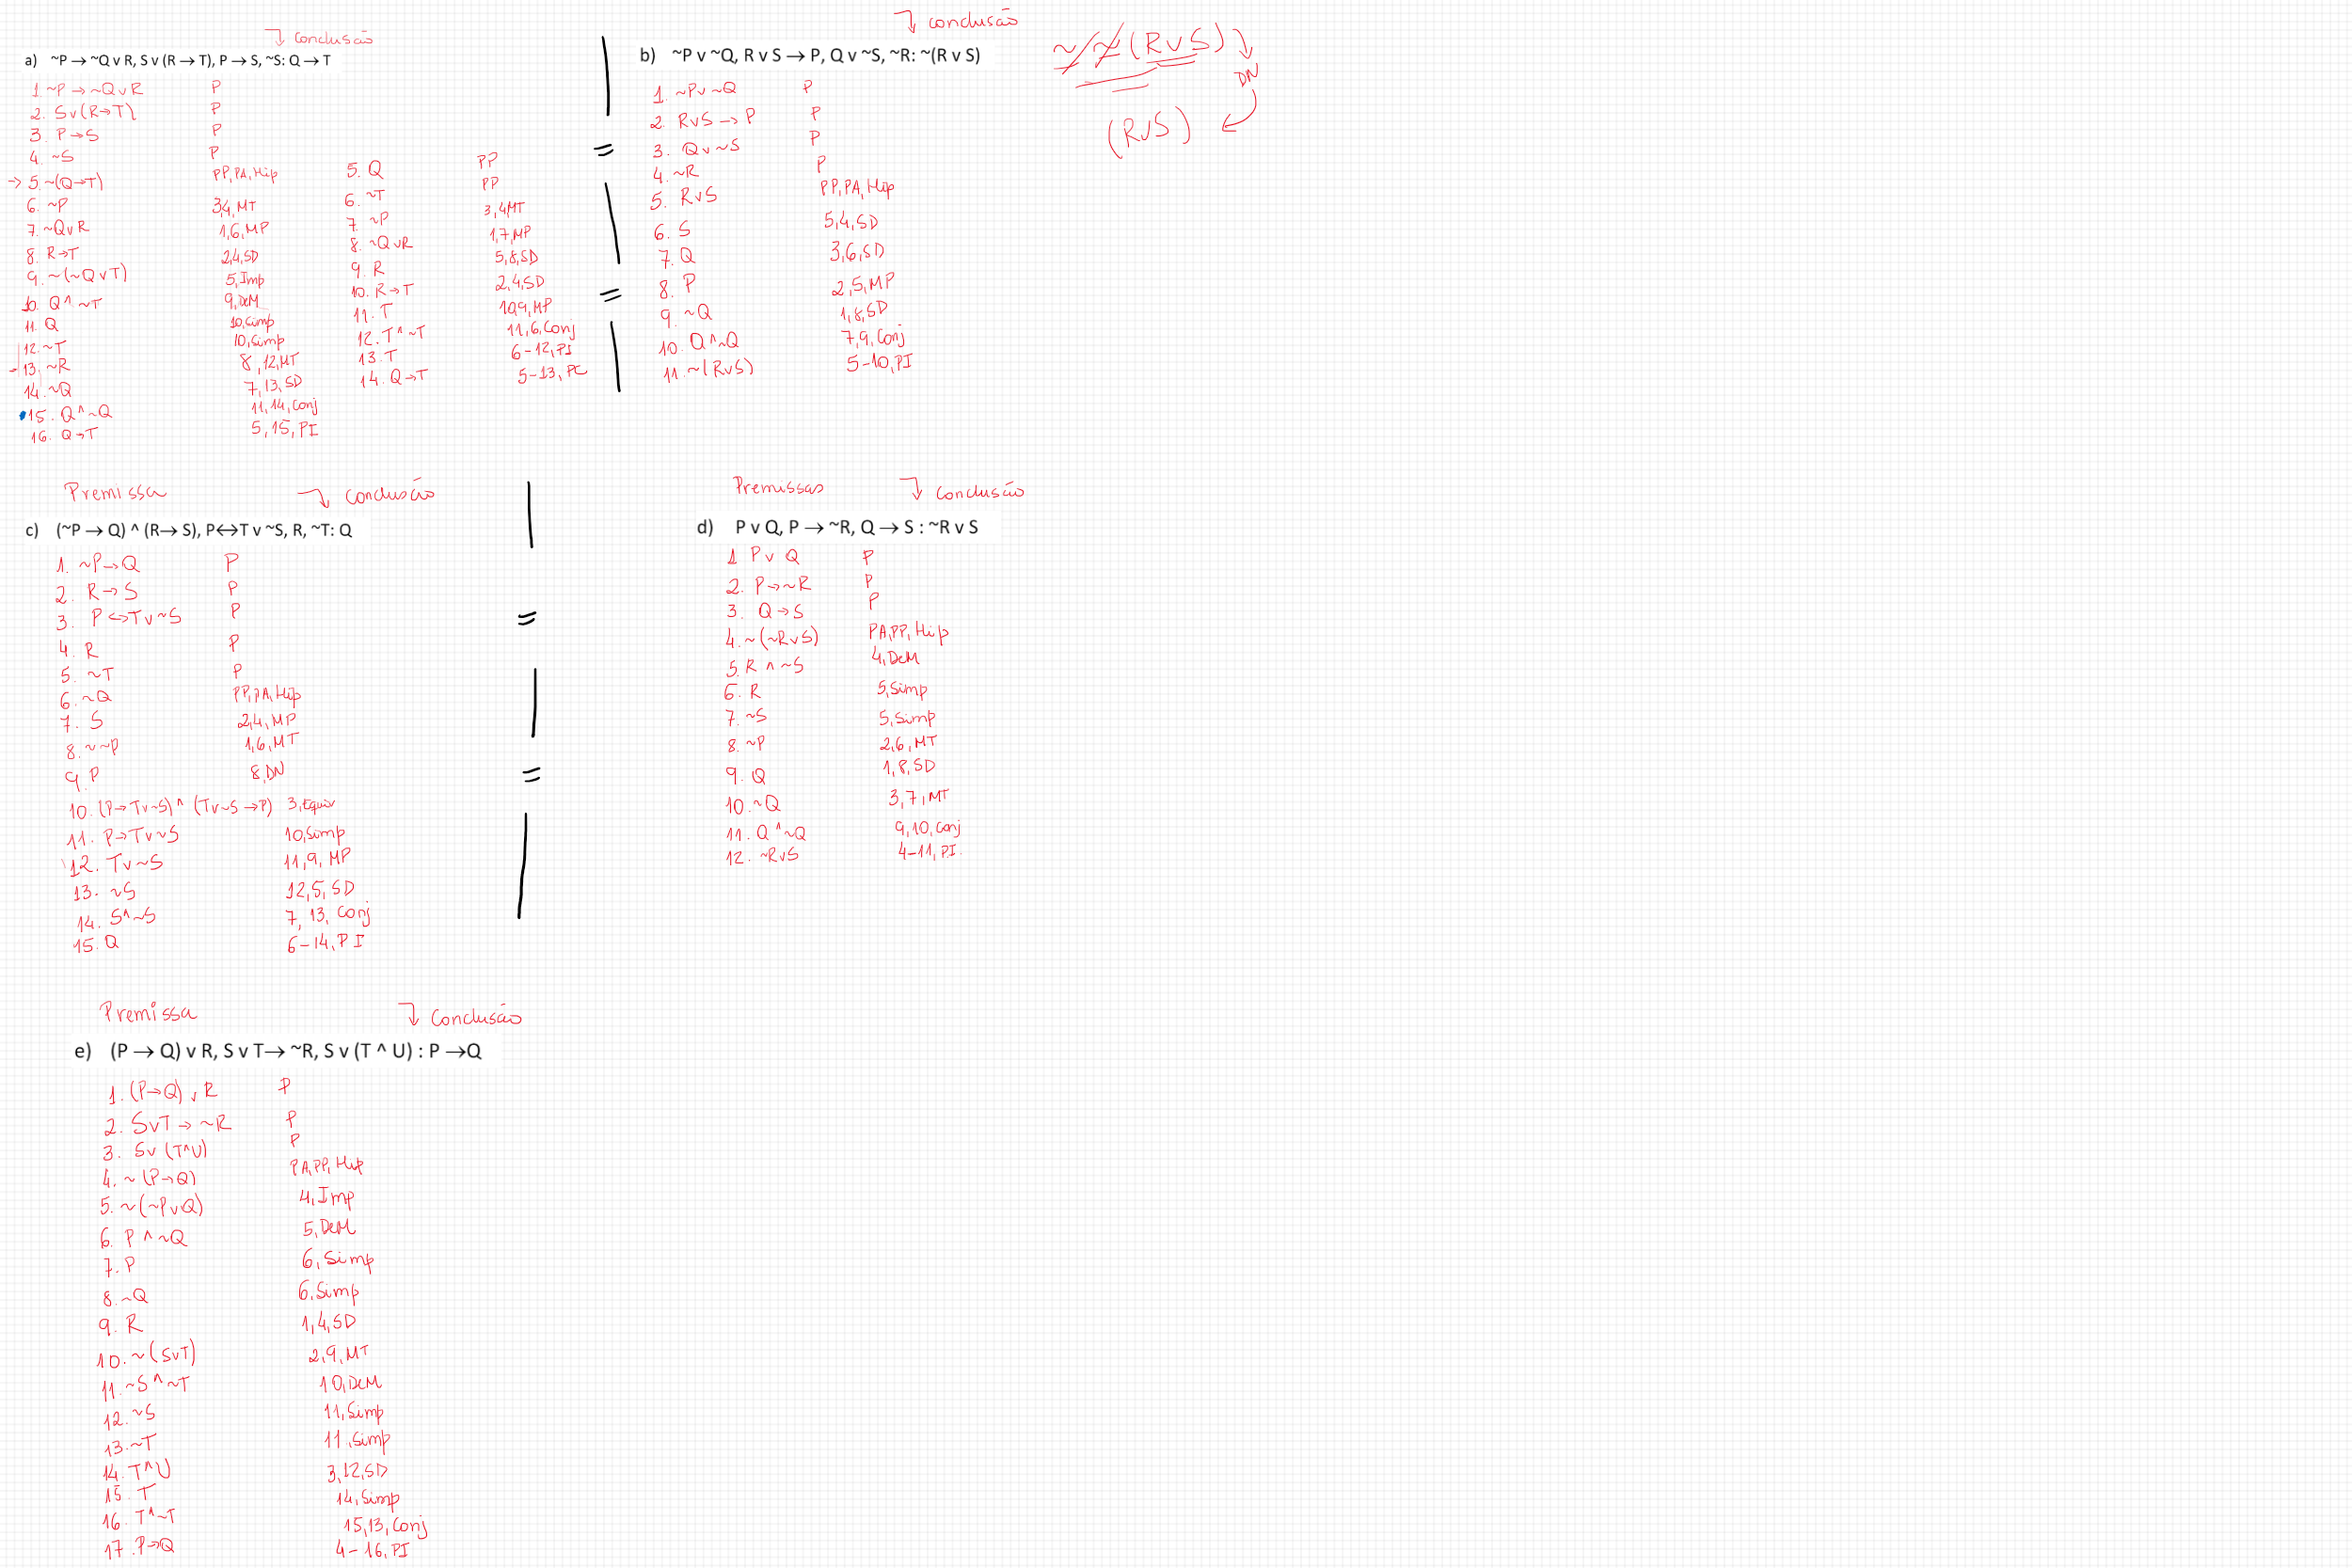 ↴ conclusão
a) ~P → ~Q v R, S v (R → T), P → S, ~S: Q → T
1. ~P → ~Q v R P
2. S v (R → T) P
3. P → S P
4. ~S P
→ 5. ~(Q → T) PP, PA, Hip
6. ~P 3,4, MT
7. ~Q v R 1,6, MP
8. R → T 2,4, SD
9. ~(~Q v T) 5, Imp
10. Q ^ ~T 9, DeM
11. Q 10, Simp
12. ~T 10, Simp
13. ~R 8, 12, MT
14. ~Q 7, 13, SD
15. Q ^ ~Q 11, 14, Conj
16. Q → T 5, 15, PI
5. Q PP
6. ~T PP
7. ~P 3, 4, MT
8. ~Q v R 1,7, MP
9. R 5,8, SD
10. R → T 2,4, SD
11. T 10,9, MP
12. T ^ ~T 11,6, Conj
13. T 6-12, PI
14. Q → T 5-13, PC
↴ conclusão
b) ~P v ~Q, R v S → P, Q v ~S, ~R: ~(R v S)
1. ~P v ~Q P
2. R v S → P P
3. Q v ~S P
4. ~R P
5. R v S PP, PA, Hip
6. S 5,4, SD
7. Q 3,6, SD
8. P 2,5, MP
9. ~Q 1,8, SD
10. Q ^ ~Q 7,9, Conj
11. ~(R v S) 5-10, PI
~~(R v S)
DN
(R v S)
Premissa ↴ Conclusão
c) (~P → Q) ^ (R → S), P ↔ T v ~S, R, ~T: Q
1. ~P → Q P
2. R → S P
3. P ↔ T v ~S P
4. R P
5. ~T P
6. ~Q PP, PA, Hip
7. S 2,4, MP
8. ~~P 1,6, MT
9. P 8, DN
10. (P → T v ~S) ^ (T v ~S → P) 3, Equiv
11. P → T v ~S 10, Simp
12. T v ~S 11, 9, MP
13. ~S 12, 5, SD
14. S ^ ~S 7, 13, Conj
15. Q 6-14, PI
Premissas ↴ Conclusão
d) P v Q, P → ~R, Q → S : ~R v S
1 P v Q P
2. P → ~R P
3. Q → S P
4. ~(~R v S) PA, PP, Hip
5. R ^ ~S 4, DeM
6. R 5, Simp
7. ~S 5, Simp
8. ~P 2,6, MT
9. Q 1, 8, SD
10. ~Q 3, 7, MT
11. Q ^ ~Q 9, 10, Conj
12. ~R v S 4-11, PI.
Premissa ↴ Conclusão
e) (P → Q) v R, S v T → ~R, S v (T ^ U) : P → Q
1. (P → Q) v R P
2. S v T → ~R P
3. S v (T ^ U) P
4. ~(P → Q) PA, PP, Hip
5. ~(~P v Q) 4, Imp
6. P ^ ~Q 5, DeM
7. P 6, Simp
8. ~Q 6, Simp
9. R 1, 4, SD
10. ~(S v T) 2, 9, MT
11. ~S ^ ~T 10, DeM
12. ~S 11, Simp
13. ~T 11, Simp
14. T ^ U 3, 12, SD
15. T 14, Simp
16. T ^ ~T 15, 13, Conj
17. P → Q 4-16, PI